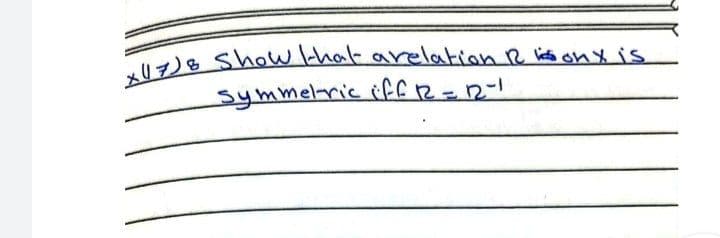 x(17)8 Show that a relation R is on X is
symmetric iff R = R-1